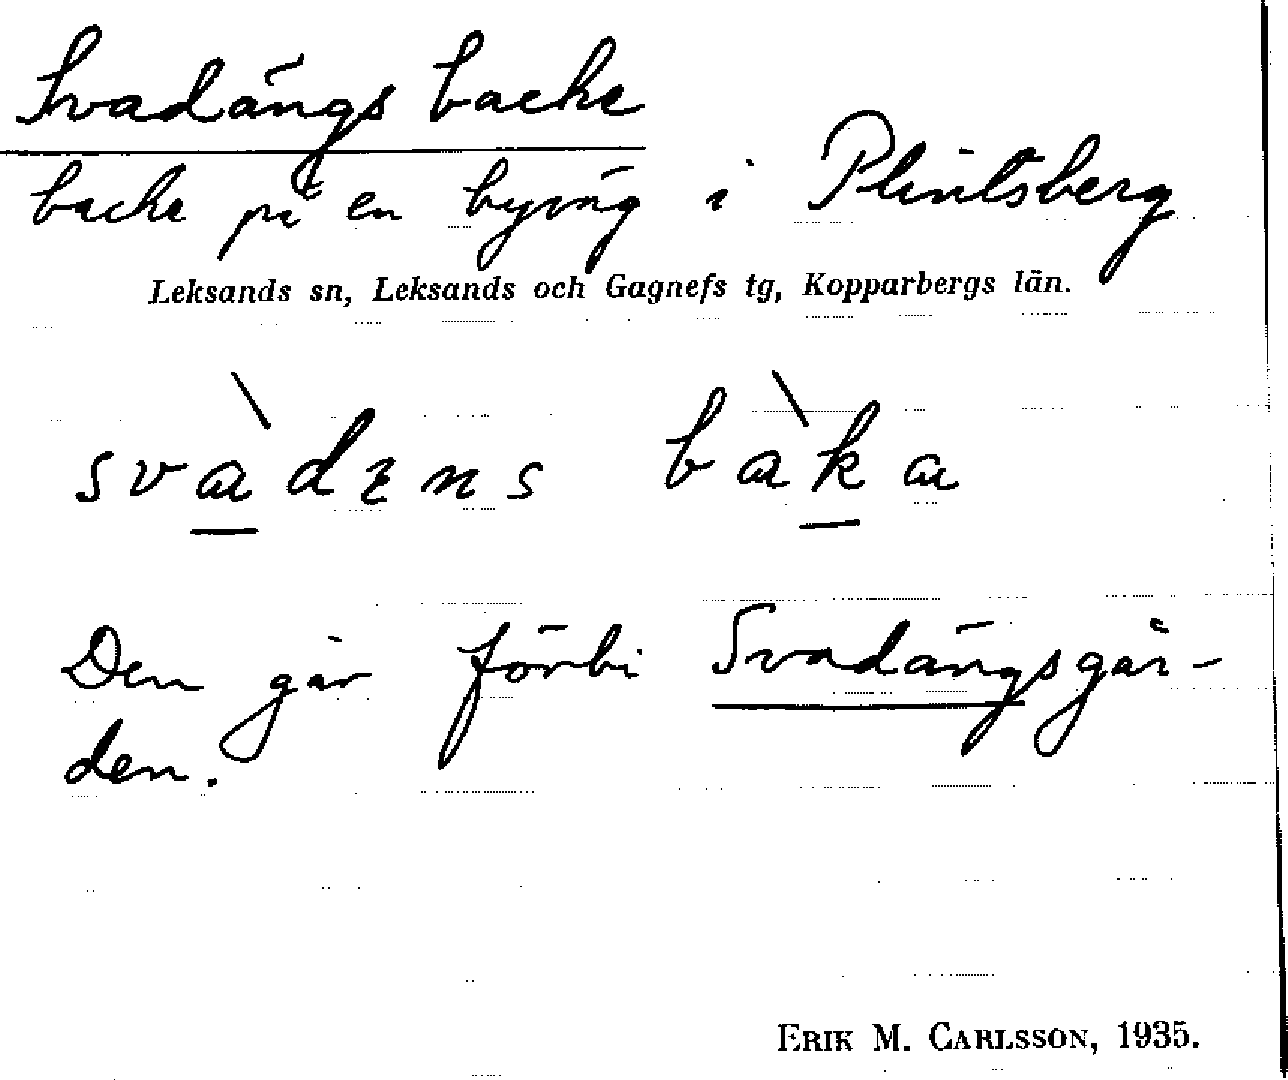 Svadängs backe
backe på en byväg i Plintsberg
Leksands sn, Leksands och Gagnefs tg, Kopparbergs län.
svàdɛns bàka
Den går förbi Svadängsgår-
den.
ERIK M. CARLSSON, 1935.